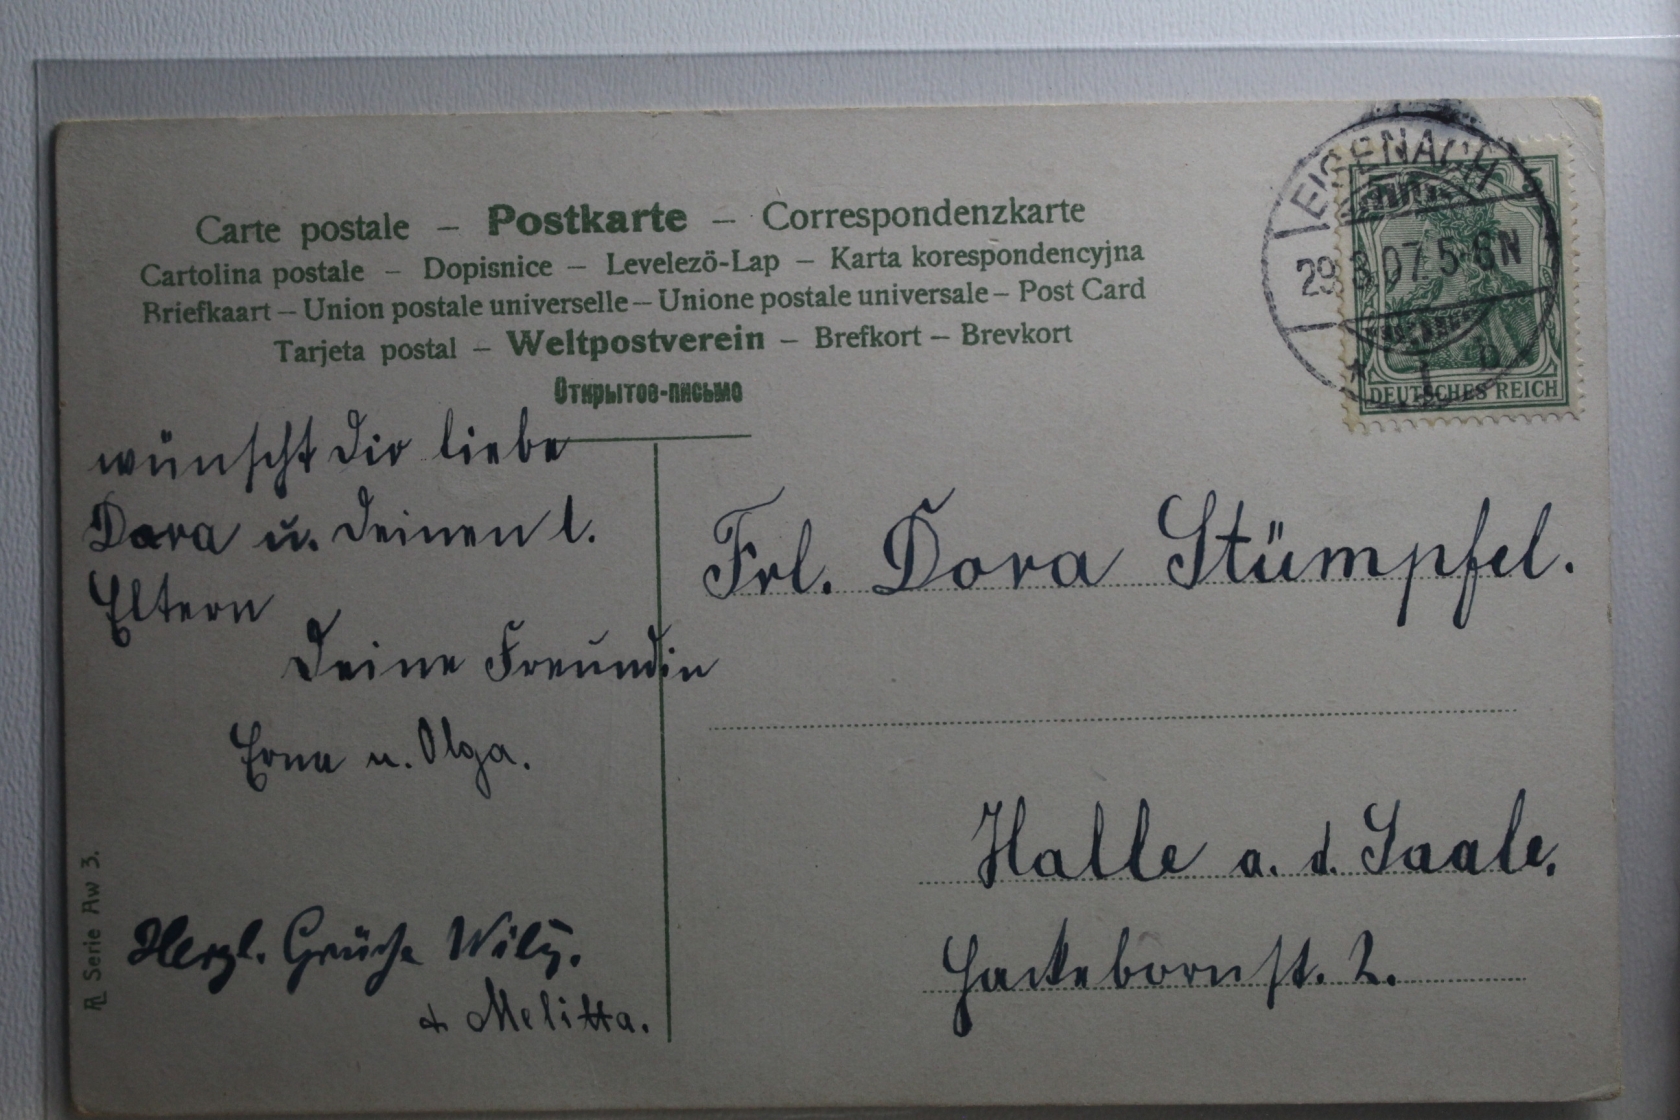 Carte postale – Postkarte – Correspondenzkarte
Cartolina postale – Dopisnice – Levelezö-Lap – Karta korespondencyjna
Briefkaart – Union postale universelle – Unione postale universale – Post Card
Tarjeta postal – Weltpostverein – Brefkort – Brevkort
Открытое-письмо
EISENACH
29.3.07. 5-6N
* 1 b
DEUTSCHES REICH
wünscht Dir liebe
Dora u. Deinen l.
Eltern
Deine Freundin
Erna u. Olga.
Herzl. Grüße Willy.
& Melitta.
Frl. Dora Stümpfel.
Halle a. d. Saale.
Hackebornst. 2.
Serie Aw 3.